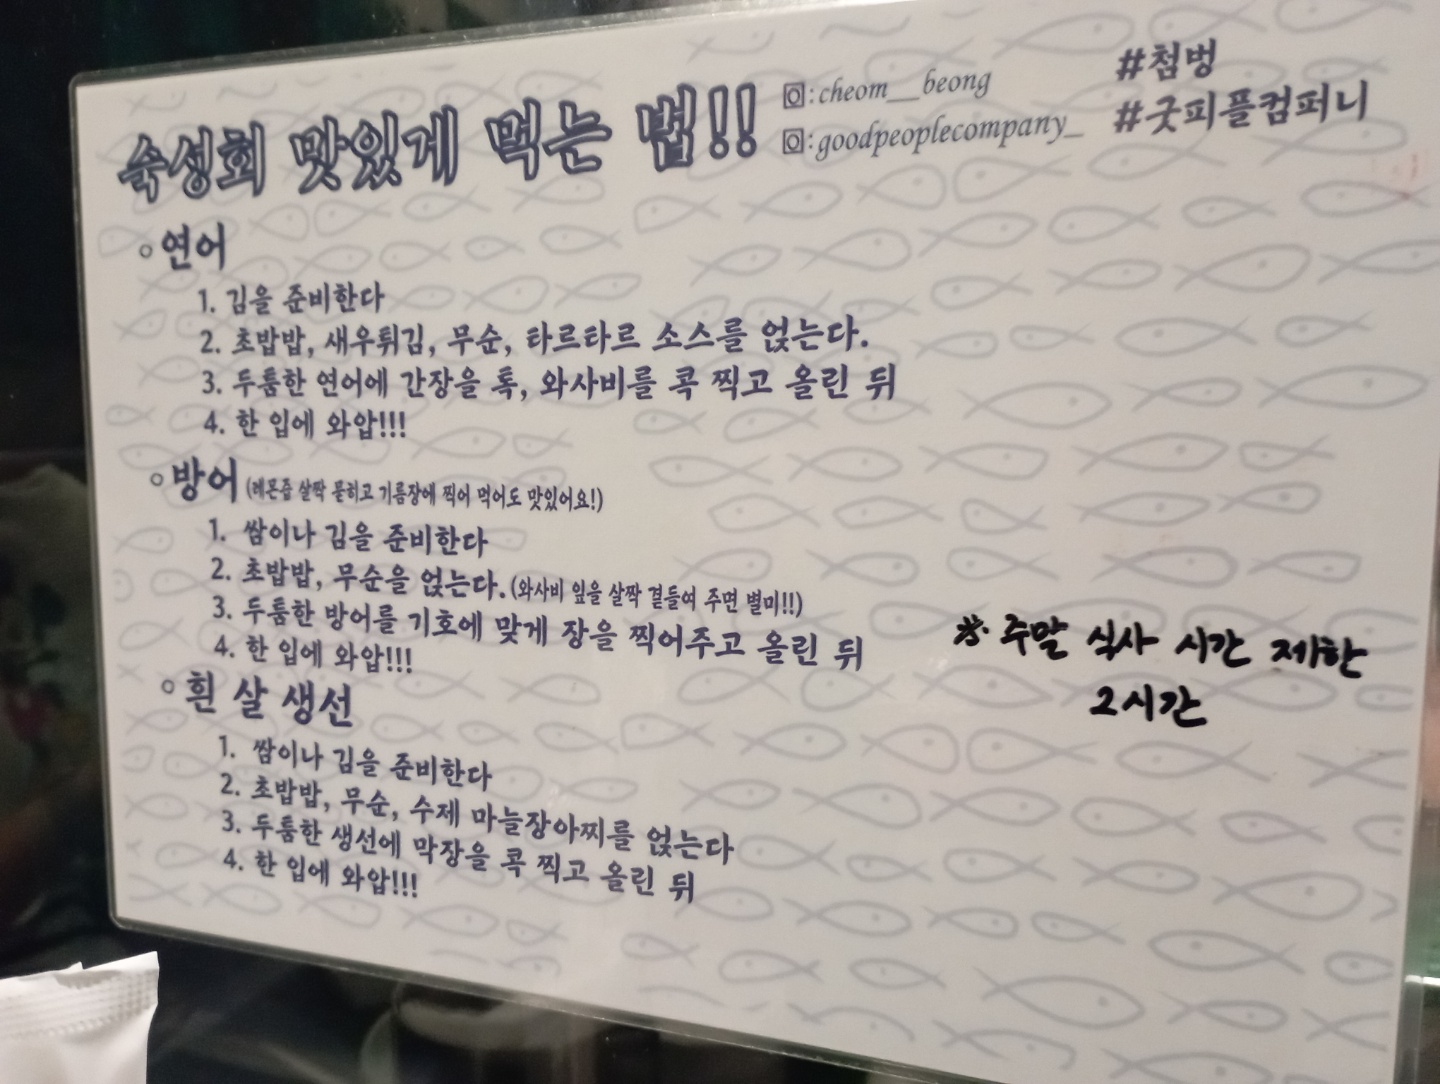 숙성회 맛있게 먹는 법!!
: cheom__beong
: goodpeoplecompany_
#첨벙
#굿피플컴퍼니
◦연어
1. 김을 준비한다
2. 초밥밥, 새우튀김, 무순, 타르타르 소스를 얹는다.
3. 두툼한 연어에 간장을 톡, 와사비를 콕 찍고 올린 뒤
4. 한 입에 와압!!!
◦방어 (레몬즙 살짝 묻히고 기름장에 찍어 먹어도 맛있어요!)
1. 쌈이나 김을 준비한다
2. 초밥밥, 무순을 얹는다. (와사비 잎을 살짝 곁들여 주면 별미!!)
3. 두툼한 방어를 기호에 맞게 장을 찍어주고 올린 뒤
4. 한 입에 와압!!!
◦흰 살 생선
1. 쌈이나 김을 준비한다
2. 초밥밥, 무순, 수제 마늘장아찌를 얹는다
3. 두툼한 생선에 막장을 콕 찍고 올린 뒤
4. 한 입에 와압!!!
※ 주말 식사 시간 제한
2시간